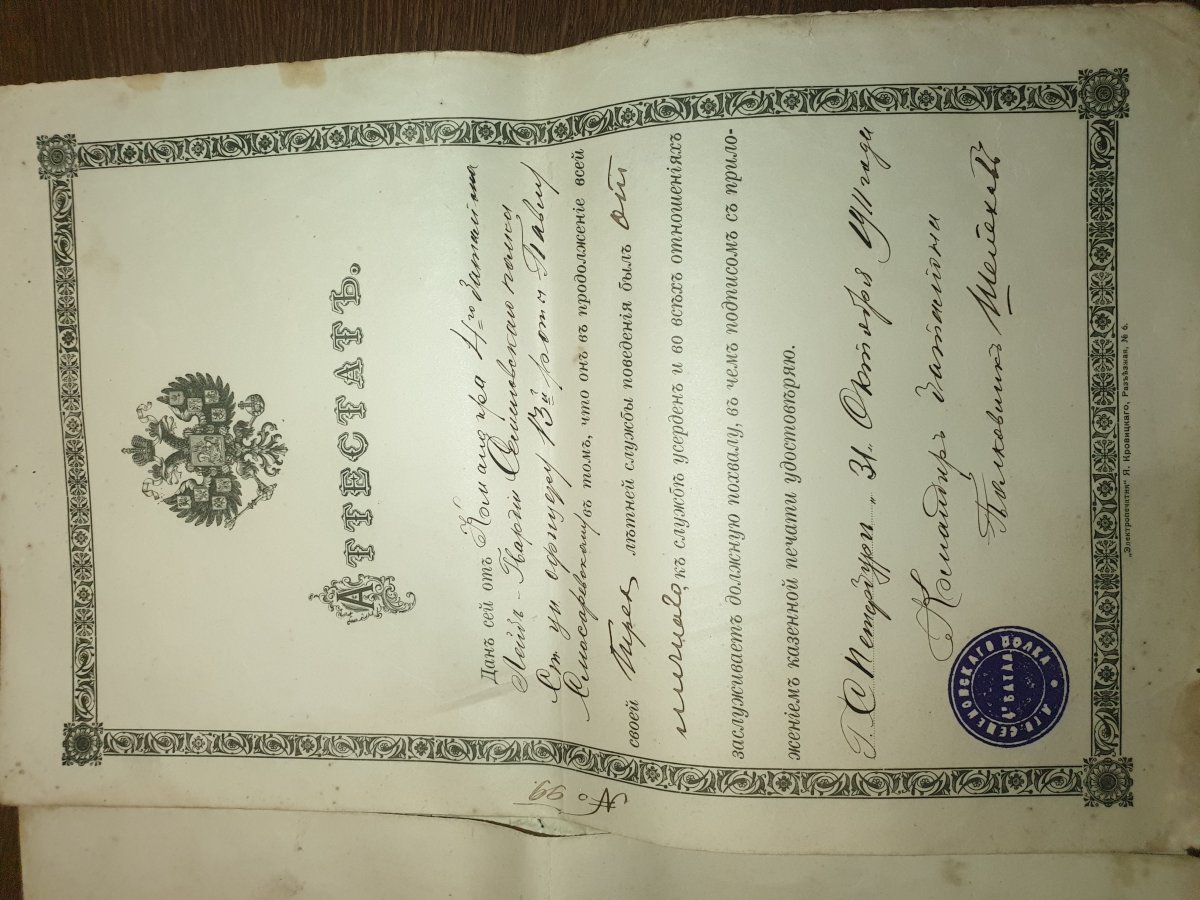 АТТЕСТАТЪ.
Данъ сей отъ Командира 4го баталіона
Лейбъ-Гвардіи Семеновскаго полка
Ст. ун. офицеру 13й роты Павлу
Слюсаревскому въ томъ, что онъ въ продолженіе всей
своей Трех лѣтней службы поведенія былъ от
личнаго, къ службѣ усерденъ и во всѣхъ отношеніяхъ
заслуживаетъ должную похвалу, въ чемъ подписомъ съ прило-
женіемъ казенной печати удостовѣряю.
Г. С Петербургъ „31" Октября 1911 года
Командиръ баталіона
Полковникъ
№ 99
Л.ГВ. СЕМЕНОВСКАГО ПОЛКА
4. БАТАЛ.
„Электропечатня" Я. Кровицкаго, Разъѣзжая, № 6.